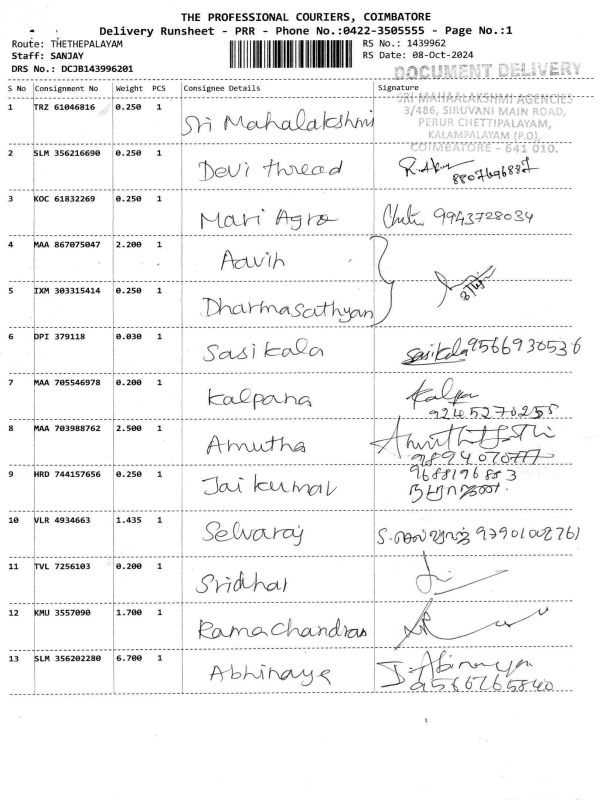 THE PROFESSIONAL COURIERS, COIMBATORE
Delivery Runsheet - PRR - Phone No.:0422-3505555 - Page No.:1
Route: THETHEPALAYAM
Staff: SANJAY
DRS No.: DCJB143996201
RS No.: 1439962
RS Date: 08-Oct-2024
DOCUMENT DELIVERY
S No Consignment No Weight PCS Consignee Details Signature
SRI MAHAALAKSHMI AGENCIES
3/486, SIRUVANI MAIN ROAD,
PERUR CHETTIPALAYAM,
KALAMPALAYAM (P.O),
COIMBATORE - 641 010.
1 TRZ 61046816 0.250 1 Sri Mahalakshmi
2 SLM 356216690 0.250 1 Devi thread
8807696887
3 KOC 61832269 0.250 1 Mari Agro 9943728034
4 MAA 867075047 2.200 1 Aavin
5 IXM 303315414 0.250 1 Dharmasathyan
6 DPI 379118 0.030 1 Sasikala Sasikala 9566930536
7 MAA 705546978 0.200 1 Kalpana
9245270255
8 MAA 703988762 2.500 1 Amutha
9 HRD 744157656 0.250 1 Jaikumar 9688196883
10 VLR 4934663 1.435 1 Selvaraj 97901008761
11 TVL 7256103 0.200 1 Sridhar
12 KMU 3557090 1.700 1 Ramachandran
13 SLM 356202280 6.700 1 Abhinaya J. Abinaya
9566765840